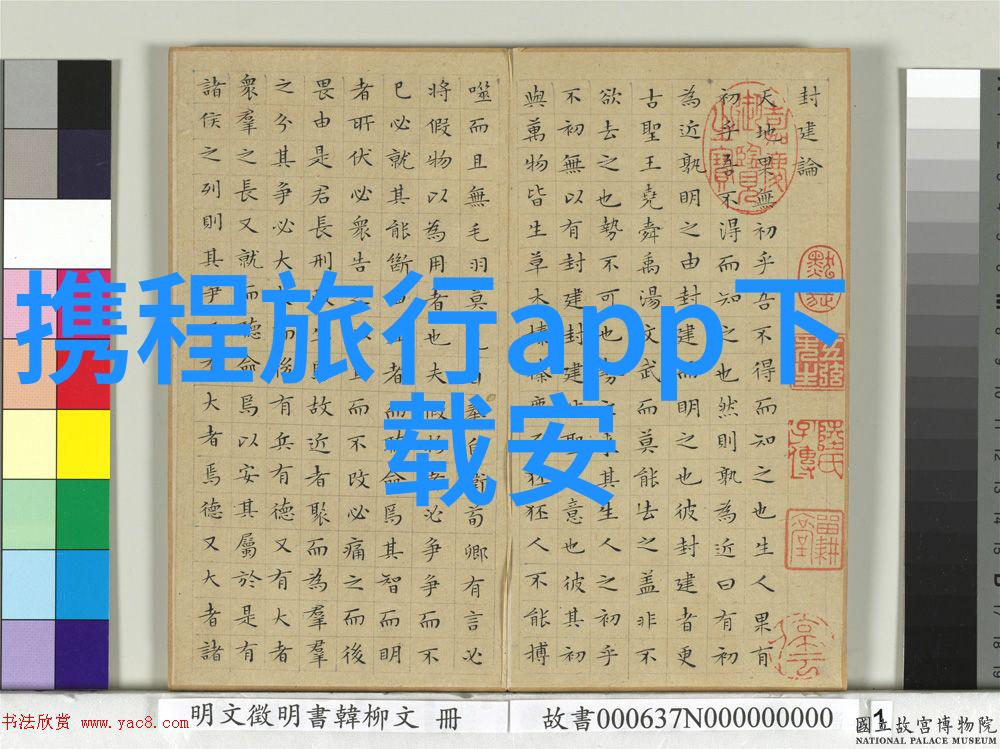 封建論
天地果無初乎吾不得而知之也生人果有
初乎吾不得而知之也然則孰為近曰有初
為近孰明之由封建而明之也彼封建者更
古聖王堯舜禹湯文武而莫能去之蓋非不
欲去之也勢不可也勢之來其生人之初乎
不初無以有封建封建非聖人意也彼其初
與萬物皆生草木榛榛鹿豕狉狉人不能搏
噬而且無毛羽莫克自奉自衛荀卿有言必
將假物以為用者也夫假物者必爭爭而不
已必就其能斷曲直者而聽命焉其智而明
者所伏必衆告之以直而不改必痛之而後
畏由是君長刑政生焉故近者聚而為羣
之分其爭必大大而後有兵有德又有大者
衆羣之長又就而聽命焉以安其屬於是有
諸侯之列則其爭又有大者焉德又大者諸
携程旅行app下
载安
嘉慶御覽之寶
陸氏子傳
明文徵明書韓柳文 冊
故書000637N000000000
1
國立故宮博物院
NATIONAL PALACE MUSEUM
书法欣赏 www.yac8.com